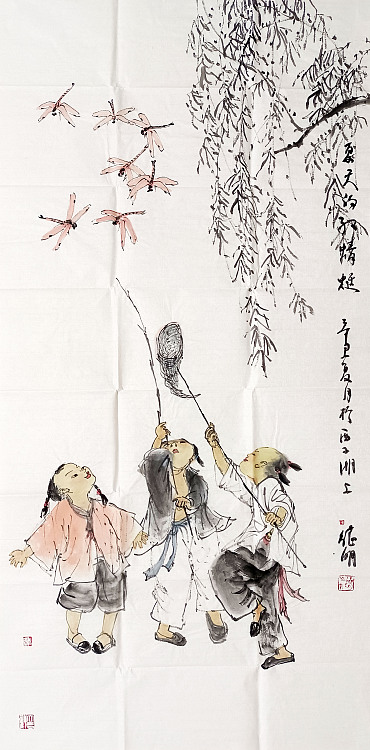 夏天的红蜻蜓 辛丑夏月於西子湖上